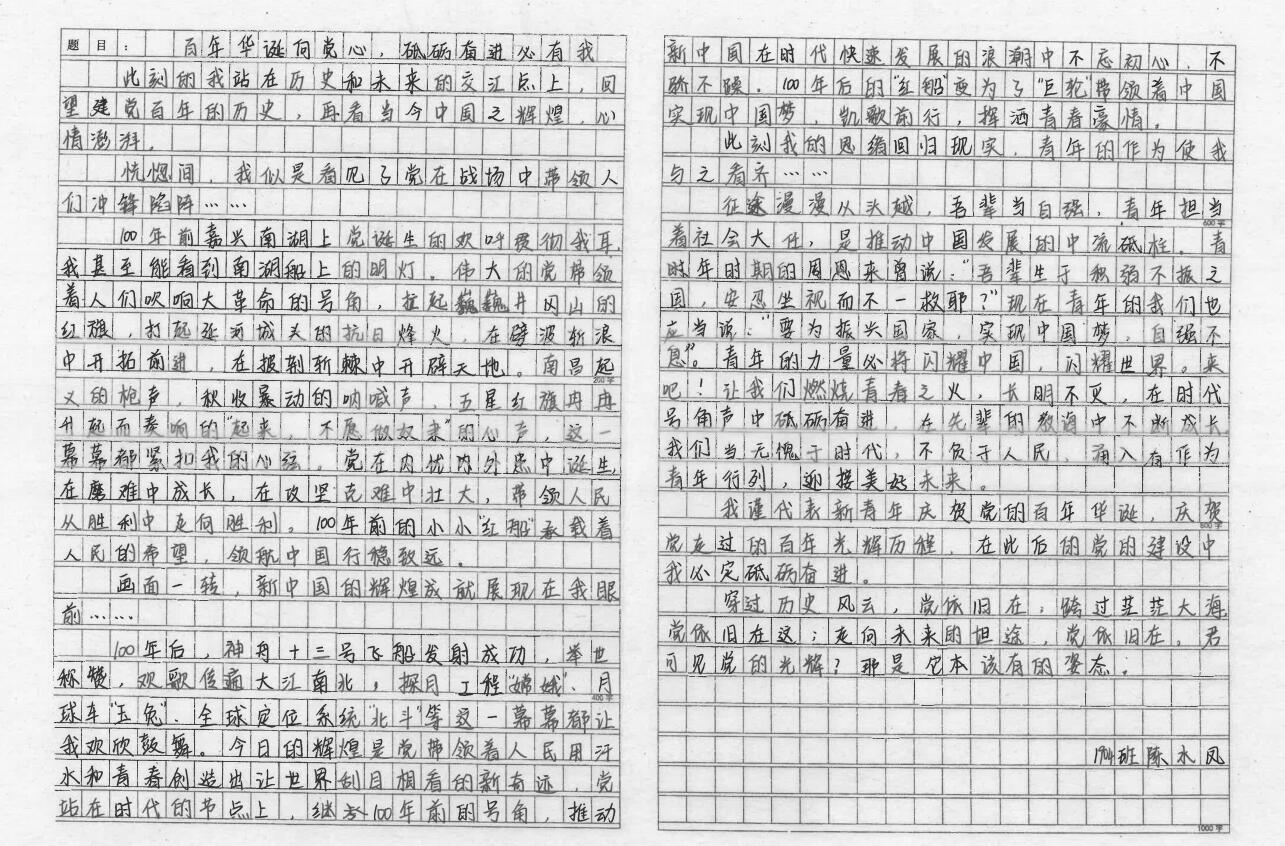 题目： 百年华诞向党心，砥砺奋进必有我
此刻的我站在历史和未来的交汇点上，回
望建党百年的历史，再看当今中国之辉煌，心
情澎湃。
恍惚间，我似是看见了党在战场中带领人
们冲锋陷阵……
100年前嘉兴南湖上党诞生的欢呼贯彻我耳，
我甚至能看到南湖船上的明灯。伟大的党带领
着人们吹响大革命的号角，扛起巍巍井冈山的
红旗，打起延河城头的抗日烽火，在劈波斩浪
中开拓前进，在披荆斩棘中开辟天地。南昌起
200字
义的枪声，秋收暴动的呐喊声，五星红旗冉冉
升起而奏响的"起来，不愿做奴隶"的心声，这一
幕幕都紧扣我的心弦。党在内优内外患中诞生，
在磨难中成长，在攻坚克难中壮大，带领人民
从胜利中走向胜利。100年前的小小"红船"承载着
人民的希望，领航中国行稳致远。
画面一转，新中国的辉煌成就展现在我眼
前……
100年后，神舟十三号飞船发射成功，举世
称赞，欢歌传遍大江南北，探月工程"嫦娥"、月
400字
球车"玉兔"、全球定位系统"北斗"等这一幕幕都让
我欢欣鼓舞。今日的辉煌是党带领着人民用汗
水和青春创造出让世界刮目相看的新奇迹，党
站在时代的节点上，继承100年前的号角，推动
新中国在时代快速发展的浪潮中不忘初心，不
骄不躁。100年后的"红船"变为了"巨轮"带领着中国
实现中国梦，凯歌前行，挥洒青春豪情。
此刻我的思绪回归现实，青年的作为使我
与之看齐……
征途漫漫从头越，吾辈当自强，青年担当
600字
着社会大任，是推动中国发展的中流砥柱。青
时年时期的周恩来曾说："吾辈生于积弱不振之
国，安忍坐视而不一救耶？"现在青年的我们也
应当说："要为振兴国家，实现中国梦，自强不
息"。青年的力量必将闪耀中国，闪耀世界。来
吧！让我们燃烧青春之火，长明不灭，在时代
号角声中砥砺奋进，在先辈的教诲中不断成长，
我们当无愧于时代，不负于人民，涌入有作为
青年行列，迎接美好未来。
我谨代表新青年庆贺党的百年华诞，庆贺
800字
党走过的百年光辉历程，在此后的党的建设中
我必定砥砺奋进。
穿过历史风云，党依旧在；跨过茫茫大海，
党依旧在这；走向未来的坦途，党依旧在，君
可见党的光辉？那是它本该有的姿态。
1904班陈水风
1000字